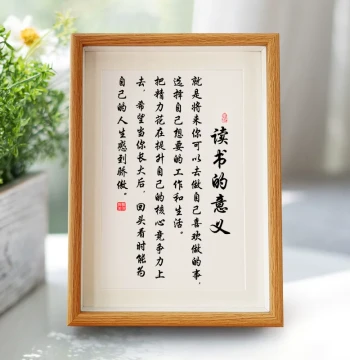 读书的意义
就是将来你可以去做自己喜欢做的事，
选择自己想要的工作和生活。
把精力花在提升自己的核心竞争力上
去，希望当你长大后，回头看时能为
自己的人生感到骄傲。